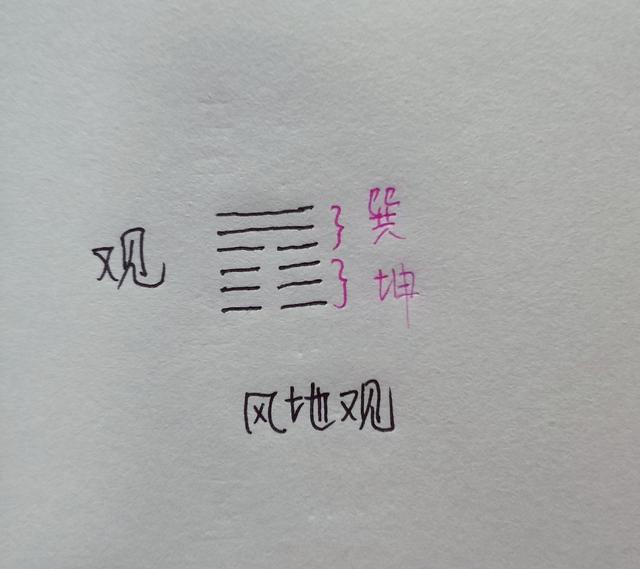 巽
观
坤
风地观